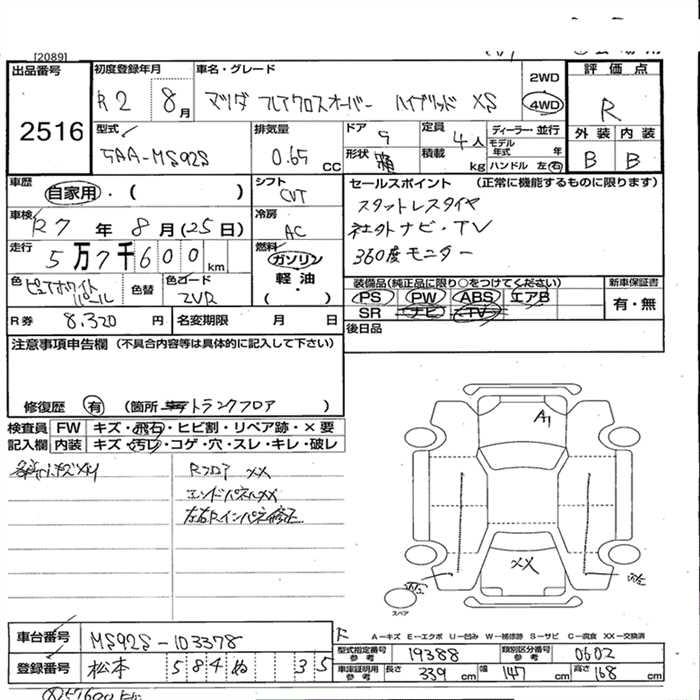 [2089]
出品番号 初度登録年月 車名・グレード 2WD 評価点
2516 R2 8月 マツダ フレアクロスオーバー ハイブリッド XS 4WD R
型式 排気量 ドア 定員 ディーラー・並行 外装 内装
5AA-MS92S 0.65 CC 5 4人 モデル年式 年 B B
形状 箱 積載 kg ハンドル 左・右
車歴 自家用・( ) シフト CVT セールスポイント (正常に機能するものに限ります)
車検 R7年 8月(25日) 冷房 AC スタットレスタイヤ
走行 5万7千600km 燃料 ガソリン 軽油・( ) 社外ナビ・TV
360度モニター
色 ピュアホワイトパール 色替 色コード ZVR
装備品(純正品に限り○をつけてください) 新車保証書
PS PW ABS エアB 有・無
SR ナビ TV
R券 8,320円 名変期限 月 日 後日品
注意事項申告欄 (不具合内容等は具体的に記入して下さい)
修復歴 有 (箇所 トランクフロア )
検査員 FW キズ・飛石・ヒビ割・リペア跡・×要
記入欄 内装 キズ・汚レ・コゲ・穴・スレ・キレ・破レ
Rフロア XX
エンドパネルXX
左右Rインパネ修正
A1
XX
スペア
A-キズ E-エクボ U-凹み W-補修跡 S-サビ C-腐食 XX-交換済
車台番号 MS92S-103378
型式指定番号 参考 19388 類別区分番号 参考 0602
登録番号 松本 584 ぬ 35
車庫証明用 参考 長さ 339cm 幅 147cm 高さ 168cm